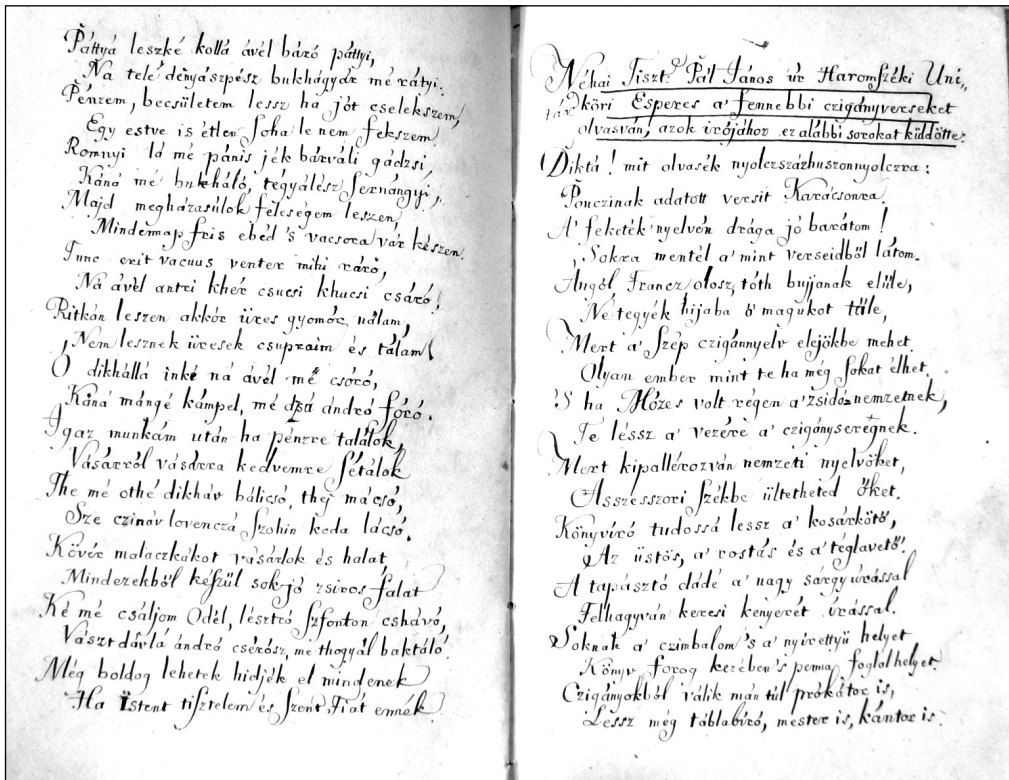 Páttyá leszké kollá ávél báró páttyi,
Na telé dényászpész bukhágyár mé rátyi.
Pénzem, becsületem lessz ha jót cselekszem,
Egy estve is étlen soha le nem fekszem
Romnyi lá mé pánis jék bárváli gádzsi,
Káná mé bukháló, tégyálész sernángyi,
Majd megházasúlok feleségem leszen
Mindennap fris ebéd 's vacsora vár készen.
Tunc erit vacuus venter mihi ráró,
Ná ávél antri khér csucsi khucsi csáró!
Ritkán leszen akkór üres gyomor nálam,
Nem lesznek üresek csupraim és tálam
O dikhállá inké ná ávél mé csóró,
Káná mángé kámpel, mé dzsá ándró fóró.
Igaz munkám után ha pénzre találok,
Vásárról vásárra kedvemre sétálok
The mé othé dikháv bálicsó, thej mácsó,
Sze czináv lovenczá szohin koda lácsó.
Kövér malaczkákot vásárlok és halat,
Mindezekből készül sok jó zsíros falat
Ké mé csáljom Odél, lésztró szfonton cshávó,
Vászt dávlá ándró csérósz, me thogyál baktáló.
Még boldog lehetek hidjék el mindenek
Ha Istent tisztelem és szent Fiát ennék.
Néhai Tiszt. Pál János úr Háromszéki Uni„
tár köri Esperes a' fennebbi czigányverseket
olvasván, azok irójához ez alábbi sorokat küldötte.
Diktá! mit olvasék nyolczszázhuszonnyolczra:
Ponczinak adatott versit Karácsonra.
A' feketék nyelvén drága jó barátom!
Sokra mentél a mint verseidből látom.
Angól Francz olosz, tóth bujjanak elüle,
Ne tegyék hijaba ő magukot tüle,
Mert a' szép czigánnyelv elejökbe mehet.
Olyan ember mint te ha még sokat élhet.
'S ha Mózes volt régen a' zsidó-nemzetnek,
Te léssz a' vezére a' czigányseregnek.
Mert kipallérozván nemzeti nyelvöket,
Asszesszori székbe ültetheted őket.
Könyvíró tudossá lessz a' kosárkötő,
Az üstös, a' rostás és a' téglavető.
A tapásztó dádé a' nagy sárgyúrással
Felhagyván keresi kenyerét irással.
Soknak a' czimbalom 's a' nyirettyü helyet
Könyv forog kezében 's penna foglol helyet.
Czigányokból válik mán túl prókátor is,
Lessz még táblabíró, mester is, kántor is.